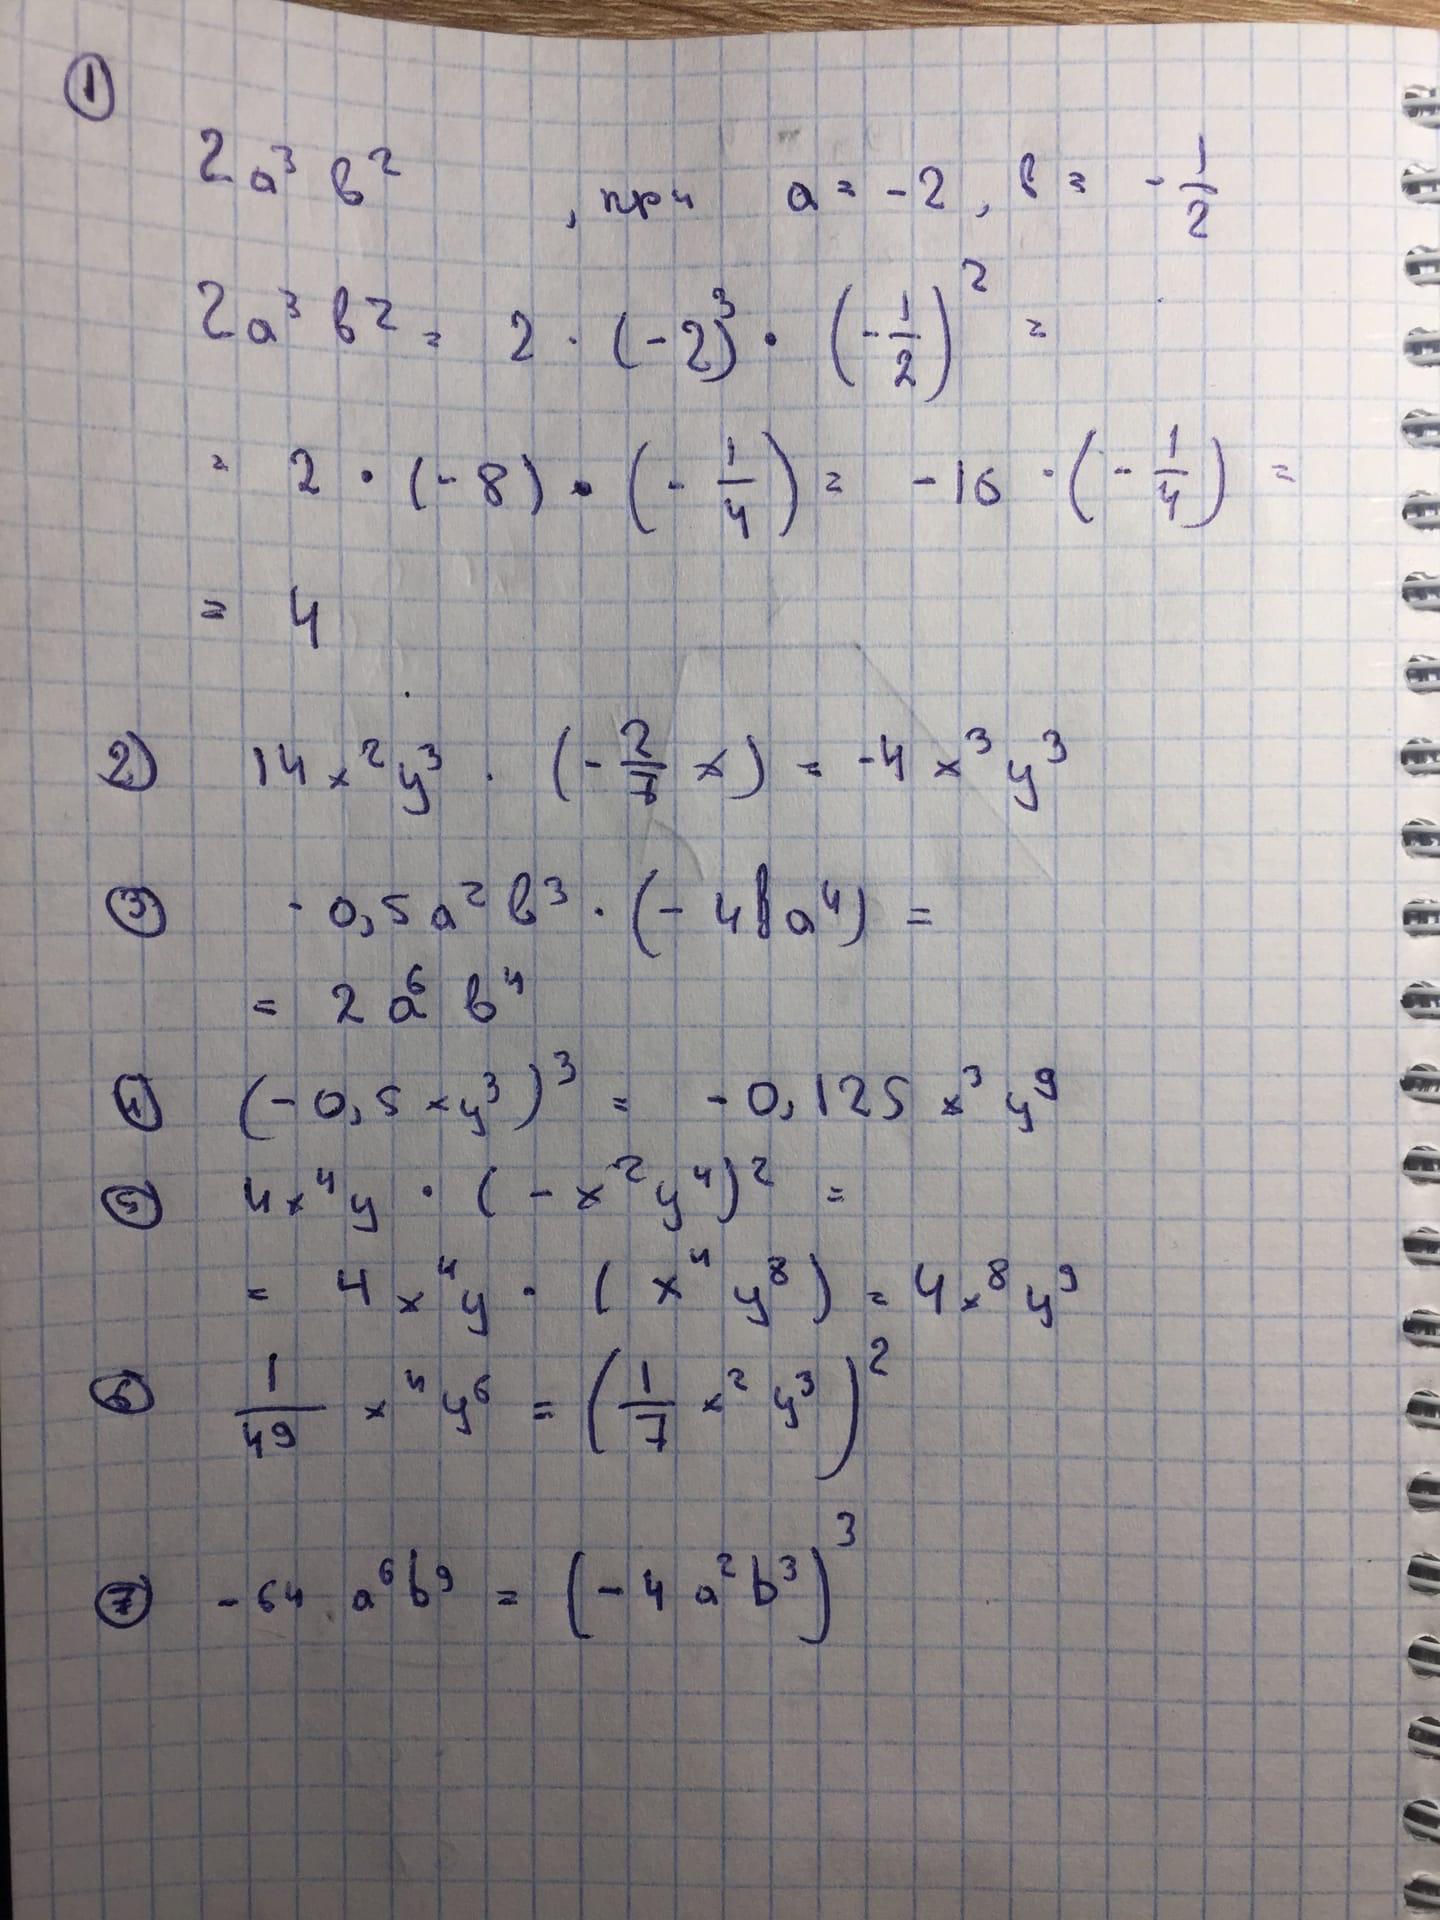 ① 2a³ в² , при a = -2, в = -1/2
2a³ в² = 2 · (-2)³ · (-1/2)² =
= 2 · (-8) · (-1/4) = -16 · (-1/4) =
= 4
2) 14x²y³ · (-2/7 x) = -4x³y³
③ -0,5a²в³ · (-4вa⁴) =
= 2a⁶в⁴
④ (-0,5xy³)³ = -0,125x³y⁹
⑤ 4x⁴y · (-x²y⁴)² =
= 4x⁴y · (x⁴y⁸) = 4x⁸y⁹
⑥ 1/49 x⁴y⁶ = (1/7 x²y³)²
⑦ -64 a⁶b⁹ = (-4a²b³)³